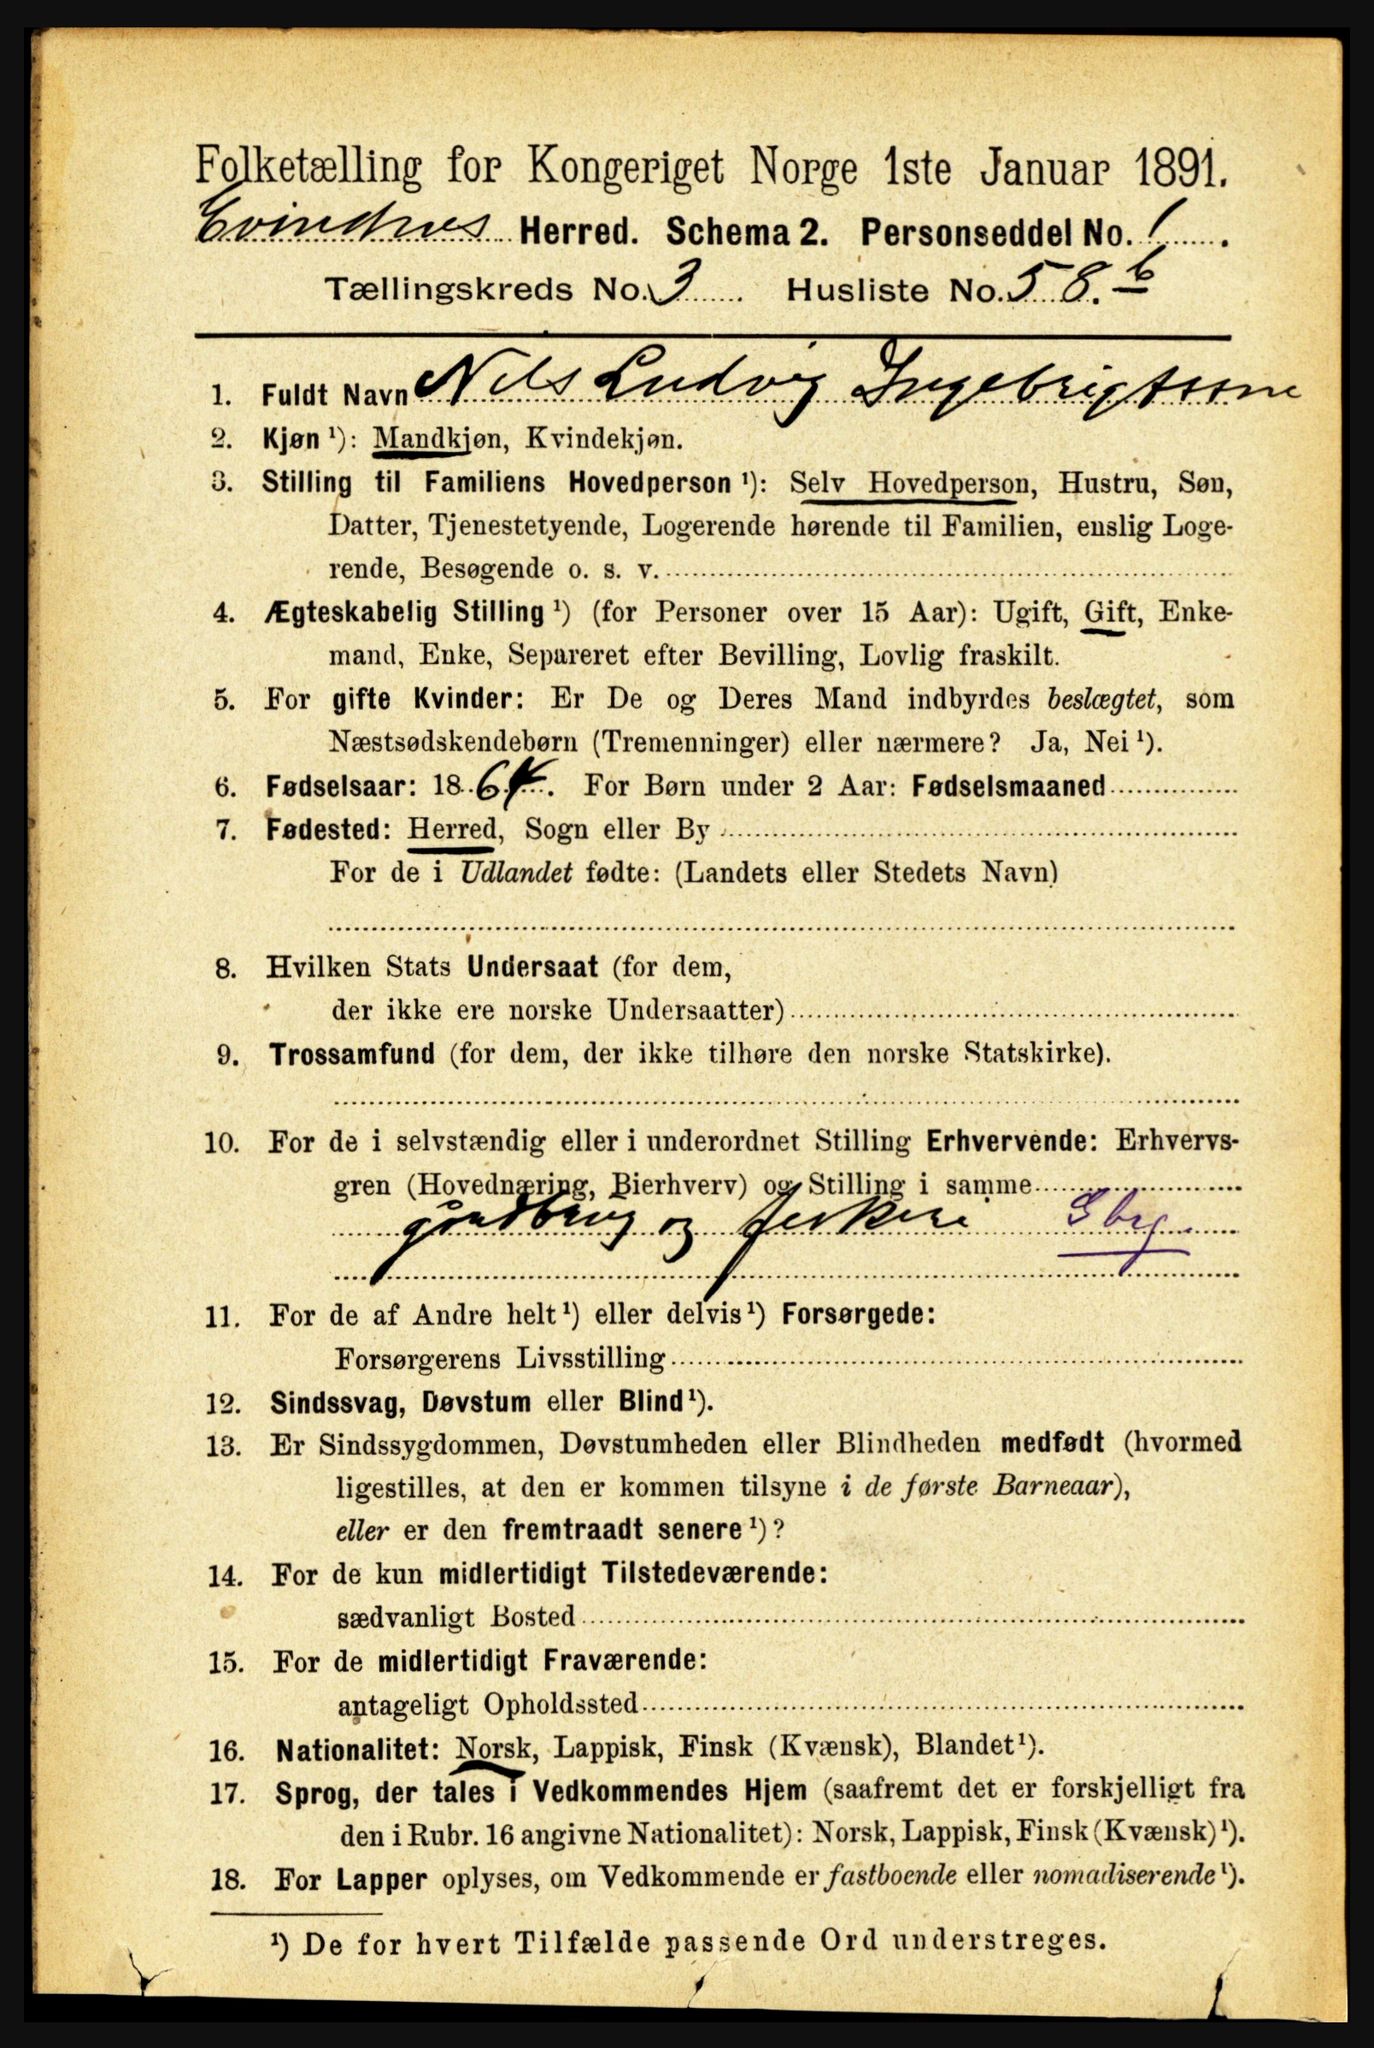 Folketælling for Kongeriget Norge 1ste Januar 1891.
Evindnes Herred. Schema 2. Personseddel No. 1.
Tællingskreds No. 3. Husliste No. 58.b
1. Fuldt Navn Nils Ludvig Ingebrigtsen
2. Kjøn ¹): Mandkjøn, Kvindekjøn.
3. Stilling til Familiens Hovedperson ¹): Selv Hovedperson, Hustru, Søn,
Datter, Tjenestetyende, Logerende hørende til Familien, enslig Loge-
rende, Besøgende o. s. v.
4. Ægteskabelig Stilling ¹) (for Personer over 15 Aar): Ugift, Gift, Enke-
mand, Enke, Separeret efter Bevilling, Lovlig fraskilt.
5. For gifte Kvinder: Er De og Deres Mand indbyrdes beslægtet, som
Næstsødskendebørn (Tremenninger) eller nærmere? Ja, Nei ¹).
6. Fødselsaar: 1864. For Børn under 2 Aar: Fødselsmaaned
7. Fødested: Herred, Sogn eller By
For de i Udlandet fødte: (Landets eller Stedets Navn)
8. Hvilken Stats Undersaat (for dem,
der ikke ere norske Undersaatter)
9. Trossamfund (for dem, der ikke tilhøre den norske Statskirke).
10. For de i selvstændig eller i underordnet Stilling Erhvervende: Erhvervs-
gren (Hovednæring, Bierhverv) og Stilling i samme
gardbrug og fiskeri Gbr.
11. For de af Andre helt ¹) eller delvis ¹) Forsørgede:
Forsørgerens Livsstilling
12. Sindssvag, Døvstum eller Blind ¹).
13. Er Sindssygdommen, Døvstumheden eller Blindheden medfødt (hvormed
ligestilles, at den er kommen tilsyne i de første Barneaar),
eller er den fremtraadt senere ¹)?
14. For de kun midlertidigt Tilstedeværende:
sædvanligt Bosted
15. For de midlertidigt Fraværende:
antageligt Opholdssted
16. Nationalitet: Norsk, Lappisk, Finsk (Kvænsk), Blandet ¹).
17. Sprog, der tales i Vedkommendes Hjem (saafremt det er forskjelligt fra
den i Rubr. 16 angivne Nationalitet): Norsk, Lappisk, Finsk (Kvænsk) ¹).
18. For Lapper oplyses, om Vedkommende er fastboende eller nomadiserende ¹).
¹) De for hvert Tilfælde passende Ord understreges.